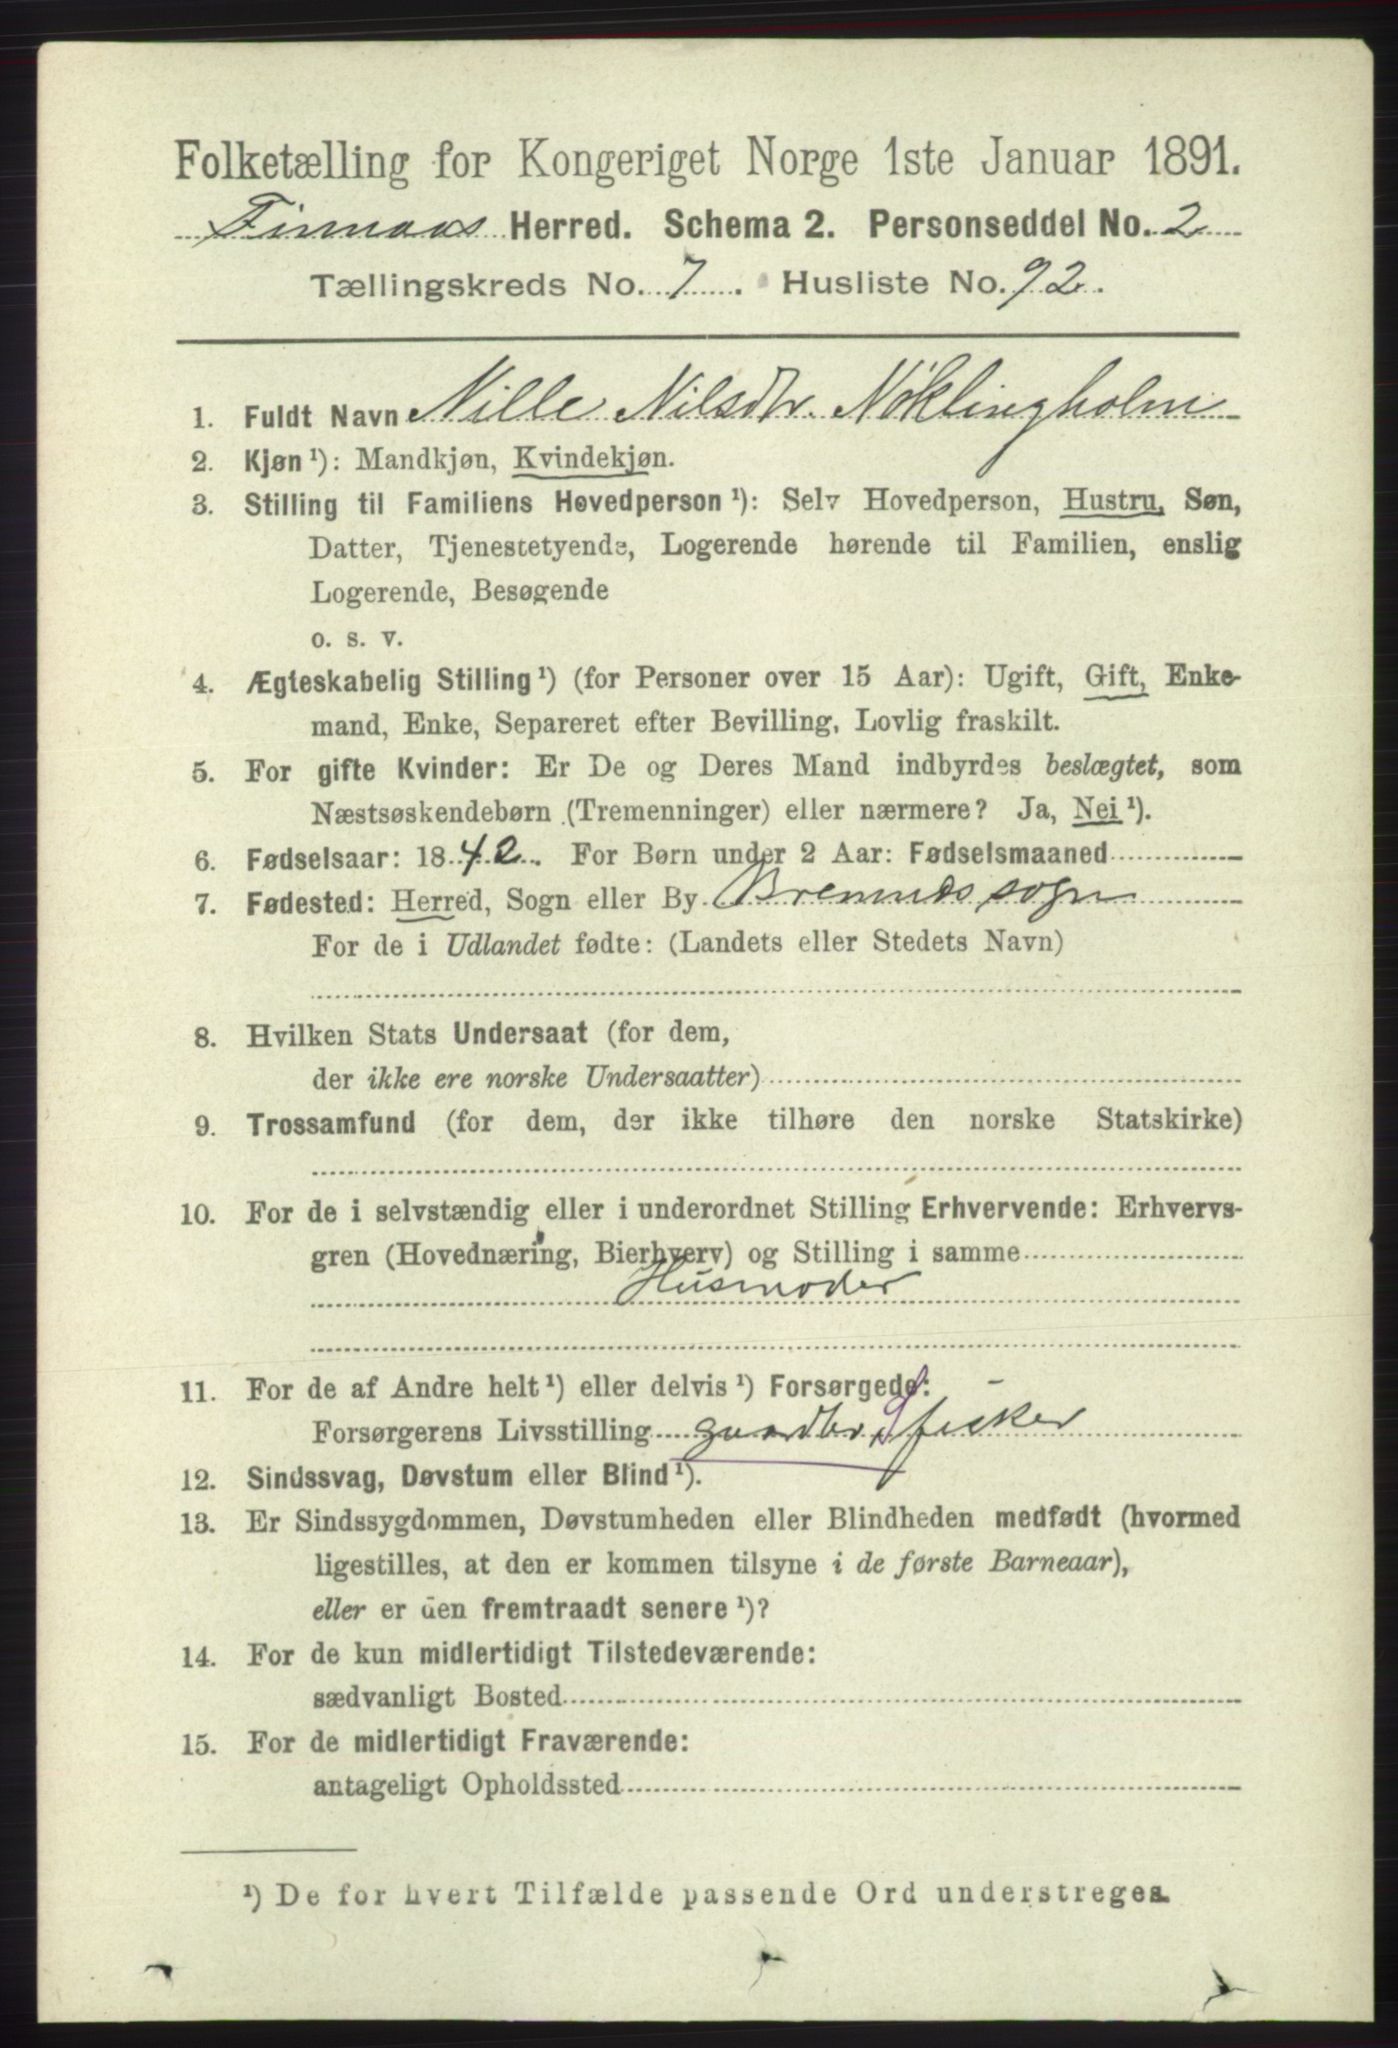 Folketælling for Kongeriget Norge 1ste Januar 1891.
Finnaas Herred. Schema 2. Personseddel No. 2
Tællingskreds No. 7. Husliste No. 92.
1. Fuldt Navn Nille Nilsdtr. Nøklingholm
2. Kjøn¹): Mandkjøn, Kvindekjøn.
3. Stilling til Familiens Hovedperson¹): Selv Hovedperson, Hustru, Søn,
Datter, Tjenestetyende, Logerende hørende til Familien, enslig
Logerende, Besøgende
o. s. v.
4. Ægteskabelig Stilling¹) (for Personer over 15 Aar): Ugift, Gift, Enke-
mand, Enke, Separeret efter Bevilling, Lovlig fraskilt.
5. For gifte Kvinder: Er De og Deres Mand indbyrdes beslægtet, som
Næstsøskendebørn (Tremenninger) eller nærmere? Ja, Nei¹).
6. Fødselsaar: 1842. For Børn under 2 Aar: Fødselsmaaned
7. Fødested: Herred, Sogn eller By Bremnes sogn
For de i Udlandet fødte: (Landets eller Stedets Navn)
8. Hvilken Stats Undersaat (for dem,
der ikke ere norske Undersaatter)
9. Trossamfund (for dem, der ikke tilhøre den norske Statskirke)
10. For de i selvstændig eller i underordnet Stilling Erhvervende: Erhvervs-
gren (Hovednæring, Bierhverv) og Stilling i samme
Husmoder
11. For de af Andre helt¹) eller delvis¹) Forsørgede:
Forsørgerens Livsstilling gaardbr. S fisker
12. Sindssvag, Døvstum eller Blind¹).
13. Er Sindssygdommen, Døvstumheden eller Blindheden medfødt (hvormed
ligestilles, at den er kommen tilsyne i de første Barneaar),
eller er den fremtraadt senere¹)?
14. For de kun midlertidigt Tilstedeværende:
sædvanligt Bosted
15. For de midlertidigt Fraværende:
antageligt Opholdssted
¹) De for hvert Tilfælde passende Ord understreges.